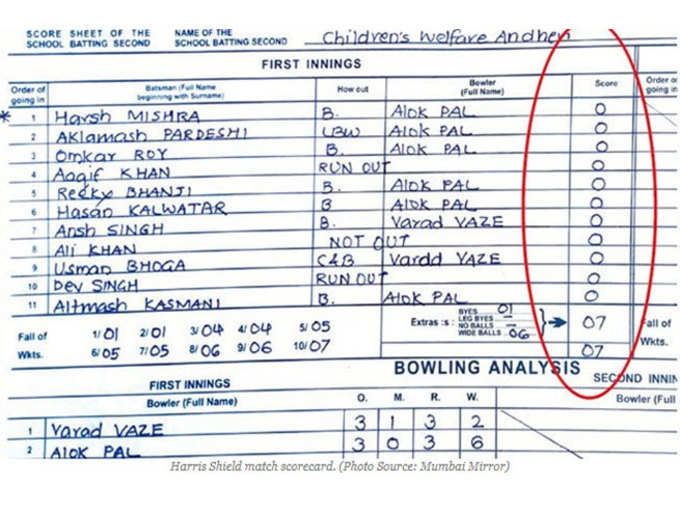 SCORE SHEET OF THE NAME OF THE
SCHOOL BATTING SECOND SCHOOL BATTING SECOND Children's Welfare Andheri
FIRST INNINGS
Order of going in Batsman (Full Name beginning with Surname) How out Bowler (Full Name) Score Order o going in
* 1 Harsh MISHRA B. Alok PAL 0
2 Aklamash PARDESHI LBW Alok PAL 0
3 Omkar ROY B. Alok PAL 0
4 Aaqif KHAN RUN OUT 0
5 Recky BHANJI B. Alok PAL 0
6 Hasan KALWATAR B Alok PAL 0
7 Ansh SINGH B. Varad VAZE 0
8 Ali KHAN NOT OUT 0
9 Usman BHOGA C&B Varad VAZE 0
10 Dev SINGH RUN OUT 0
11 Altmash KASMANI B. Alok PAL 0
Extras :s : BYES 01 LEG BYES NO BALLS - WIDE BALLS 06 07
Fall of 1/01 2/01 3/04 4/04 5/05 Fall of
Wkts. 6/05 7/05 8/06 9/06 10/07 07 Wkts.
BOWLING ANALYSIS
FIRST INNINGS SECOND INNIN
Bowler (Full Name) O. M. R. W. Bowler (Full
1 Varad VAZE 3 1 3 2
2 Alok PAL 3 0 3 6
Harris Shield match scorecard. (Photo Source: Mumbai Mirror)